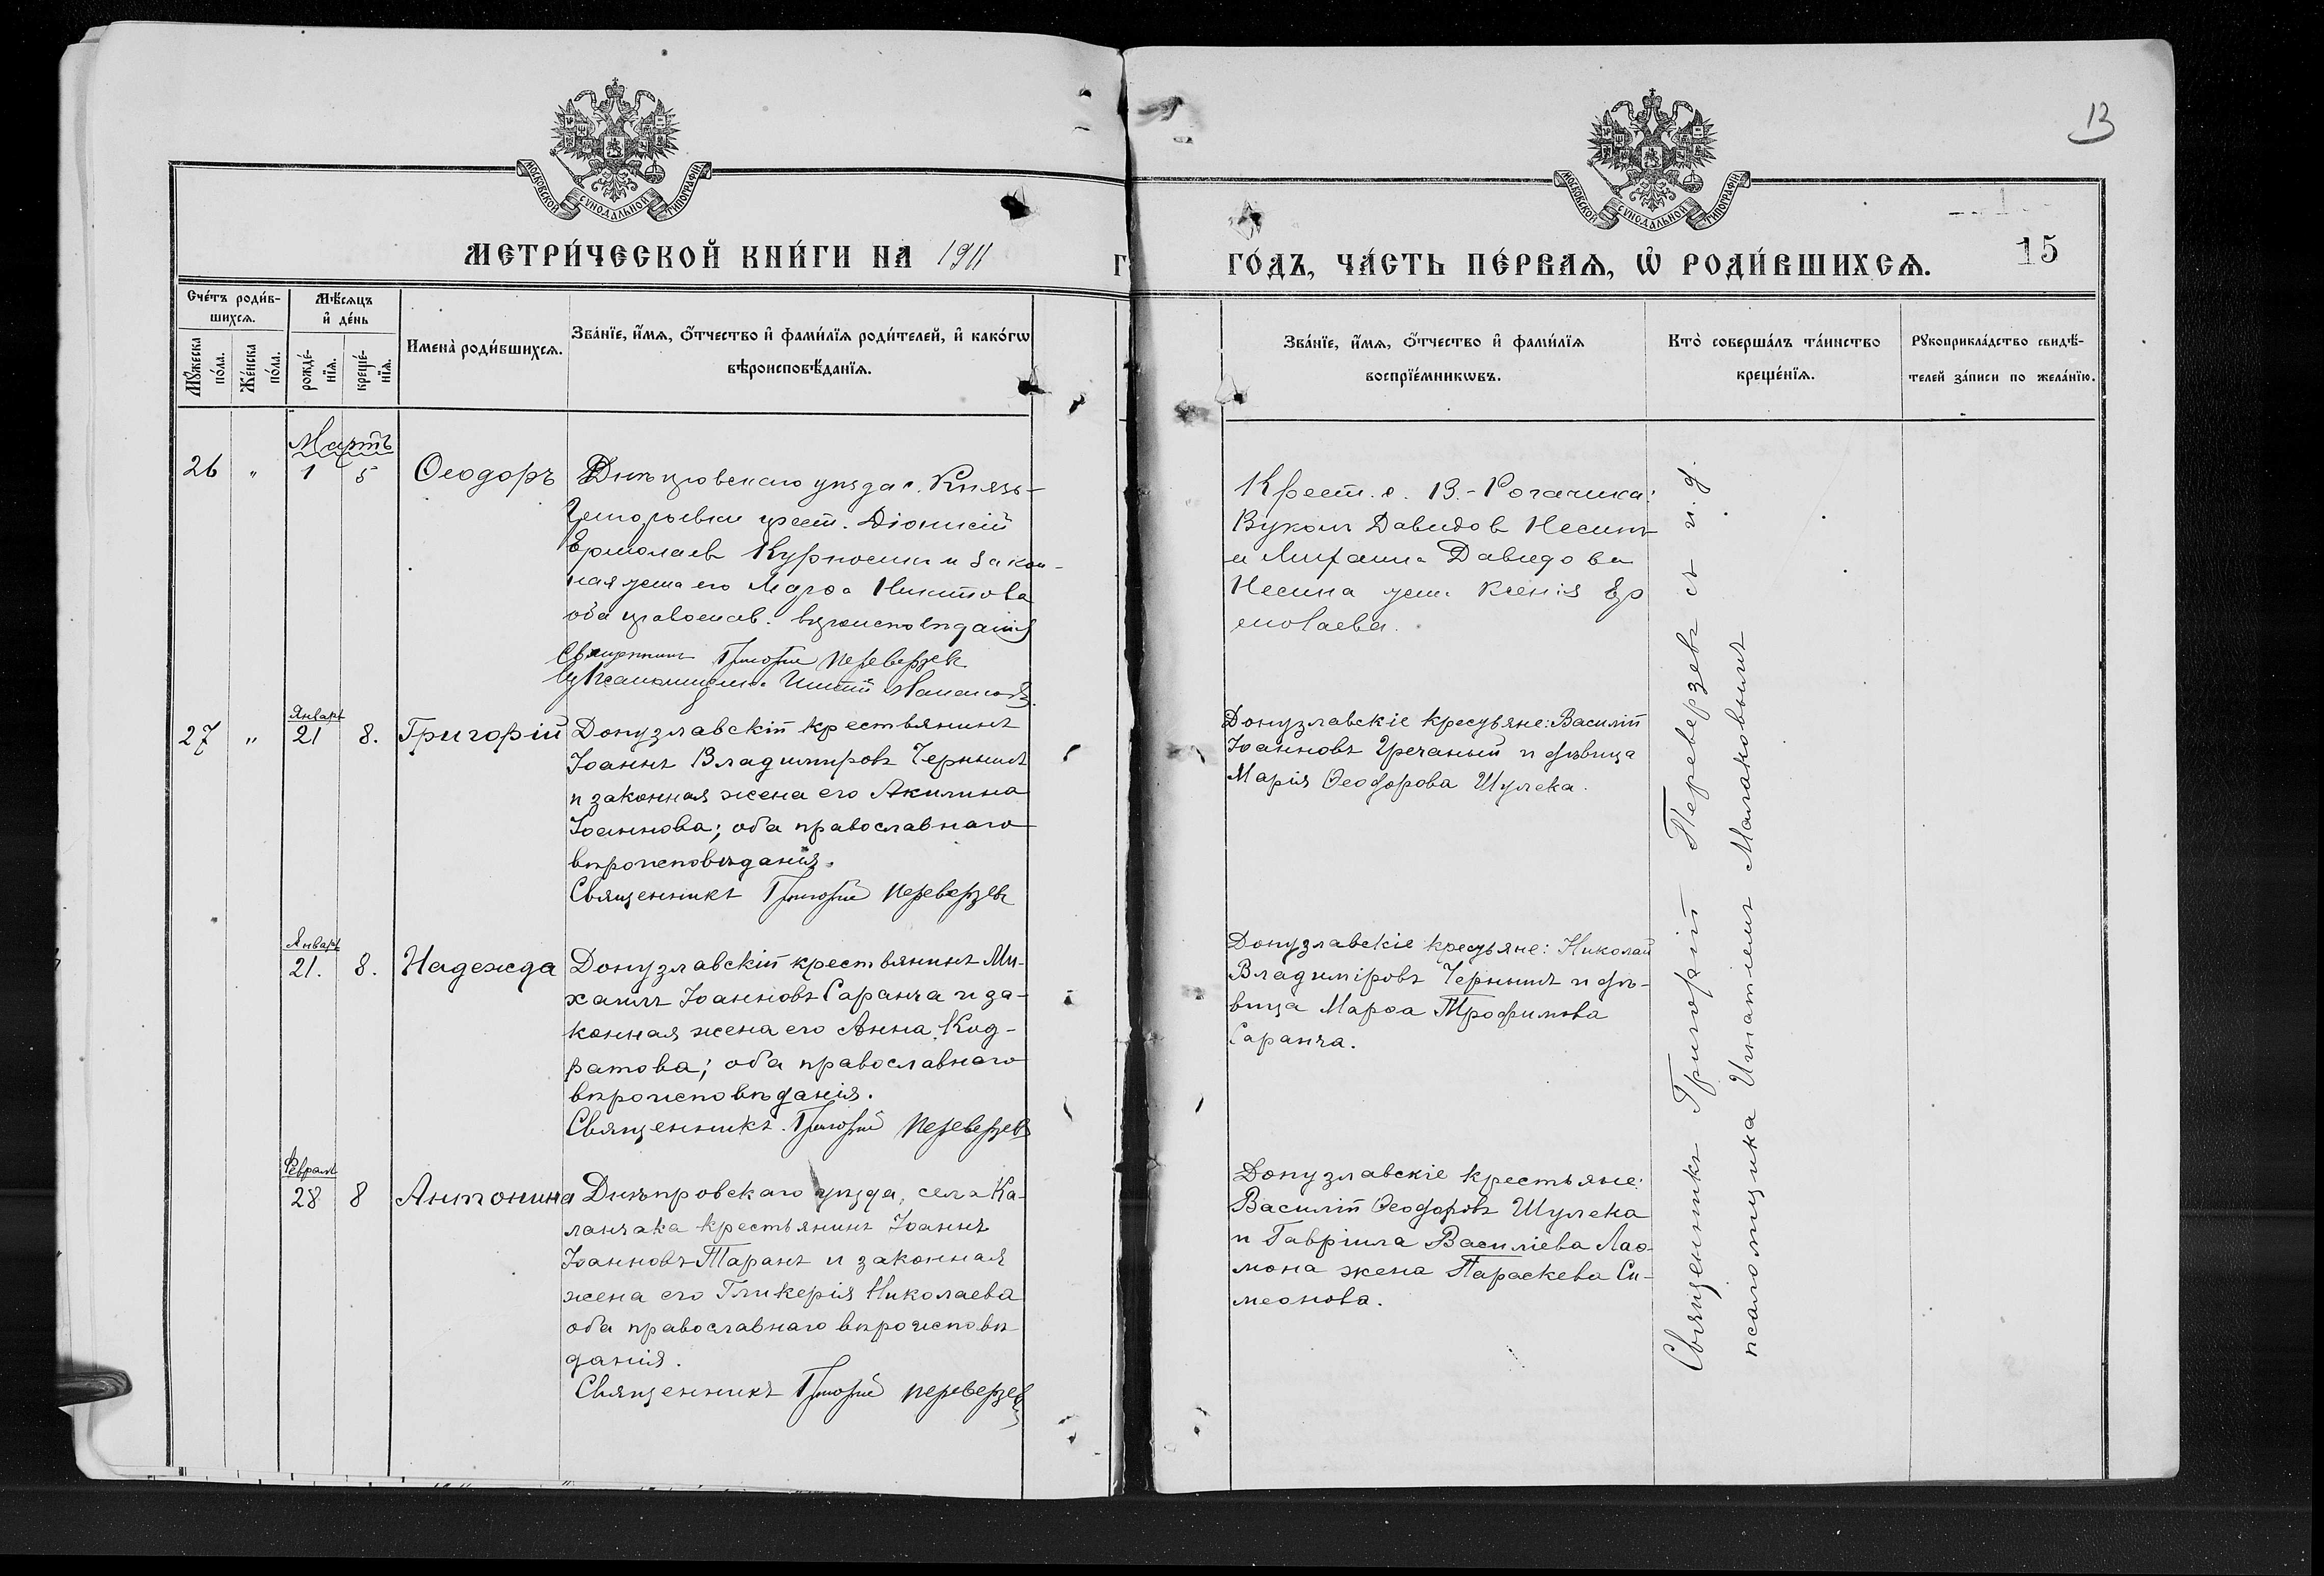 13
МОСКОВСКОЙ СѴНОДАЛЬНОЙ ТИПОГРАФІИ
МОСКОВСКОЙ СѴНОДАЛЬНОЙ ТИПОГРАФІИ
МЕТРИ́ЧЕСКОЙ КНИ́ГИ НА̀ 1911
ГО́ДЪ, ЧА́СТЬ ПЕ́РВАѦ, Ѡ҆ РОДИ́ВШИХСѦ.
15
Сче́тъ роди́в-
шихсѧ.
Мꙋ́жеска
по́ла.
Же́нска
по́ла.
Мѣ́сѧцъ
и҆ де́нь
рожде́-
нїѧ.
креще́-
нїѧ.
Имена̀ роди́вшихсѧ.
Зва́нїе, и҆́мѧ, ѻ҆́тчество и҆ фами́лїѧ роди́телей, и҆ како́гѡ
вѣроисповѣ́данїѧ.
Зва́нїе, и҆́мѧ, ѻ҆́тчество и҆ фами́лїѧ
воспрїе́мникѡвъ.
Кто̀ соверша́лъ та́инство
креще́нїѧ.
Рꙋкоприкла́дство свидѣ́-
телей за́писи по жела́нїю.
Мартъ
26 „ 1 5 Ѳеодоръ
Днѣпровскаго уѣзда с. Князь-
Григорьевки крест. Діонисій
Ермолаев Курносик и закон-
ная жена его Марѳа Никитова
оба православ. вѣроисповѣданія
Священник Григорій Переверзев
Крест. с. В.-Рогачика:
Вукол Давидов Несин
Давидова
Несина жена Ксенія Ер
молаева.
Январь
27 „ 21 8. Григорій
Донузлавскій крестьянинъ
Іоаннъ Владимировъ Чернышъ
и законная жена его Акилина
Іоаннова; оба православнаго
вѣроисповѣданія.
Священникъ Григорій Переверзев
Донузлавскіе крестьяне: Василій
Іоанновъ Гречаный и дѣвица
Марія Ѳеодорова Шулека.
Январь
21. 8. Надежда
Донузлавскій крестьянинъ Ми-
хаилъ Іоанновъ Саранча и за-
конная жена его Анна Код-
ратова; оба православнаго
вѣроисповѣданія.
Священникъ Григорій Переверзевъ
Донузлавскіе крестьяне: Николай
Владиміровъ Чернышъ и дѣ-
вица Марѳа Трофимова
Саранча.
Февраль
28 8 Антонина
Днѣпровскаго уѣзда, села Ка-
ланчака крестьянинъ Іоаннъ
Іоанновъ Таранъ и законная
жена его Гликерія Николаева
оба православнаго вѣроисповѣ-
данія.
Священникъ Григорій Переверзевъ
Донузлавскіе крестьяне:
Василій Ѳеодоровъ Шулека
и Гавріила Василіева Лао-
мона жена Параскева Си-
меонова.
Священникъ Григорій Переверзевъ съ и. д.
псаломщика Игнатіемъ Малаховымъ